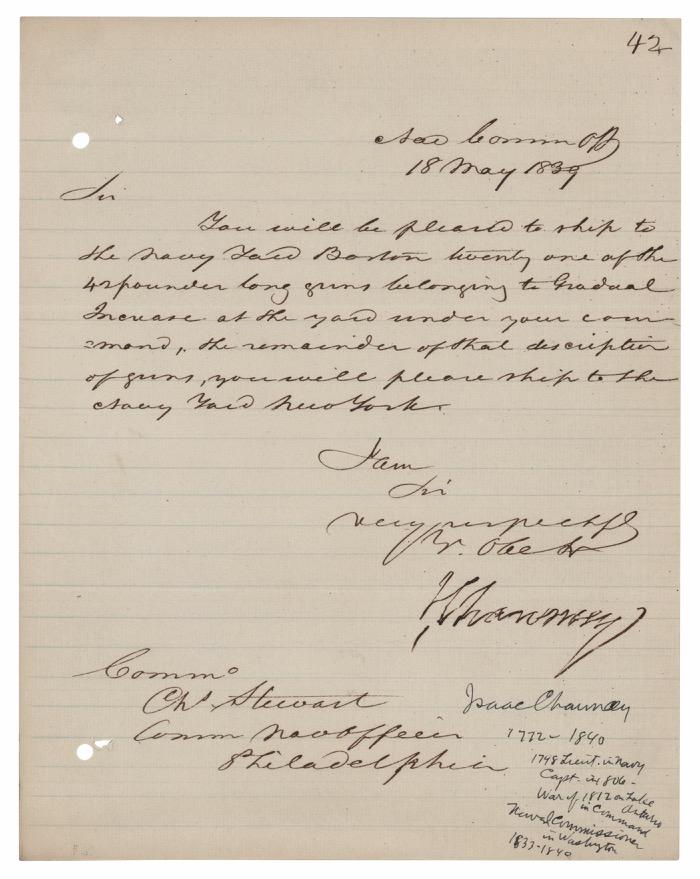 42
Nav Comm Off
18 May 1839
Sir
You will be pleased to ship to
the Navy Yard Boston twenty one of the
42 pounder long guns belonging to Gradual
Increase at the yard under your com-
=mand, the remainder of that description
of guns, you will please ship to the
Navy Yard New York.
I am
Sir
very respectfy
Yr. Obt Sr
I Chauncey
Commo
Chs. Stewart
Comm Nav Officer
Philadelphia
Isaac Chauncey
1772-1840
1798 Lieut. in Navy
Capt. in 1806-
War of 1812 on Lake
Ontario
in Command
Naval Commissioner
in Washington
1833-1840